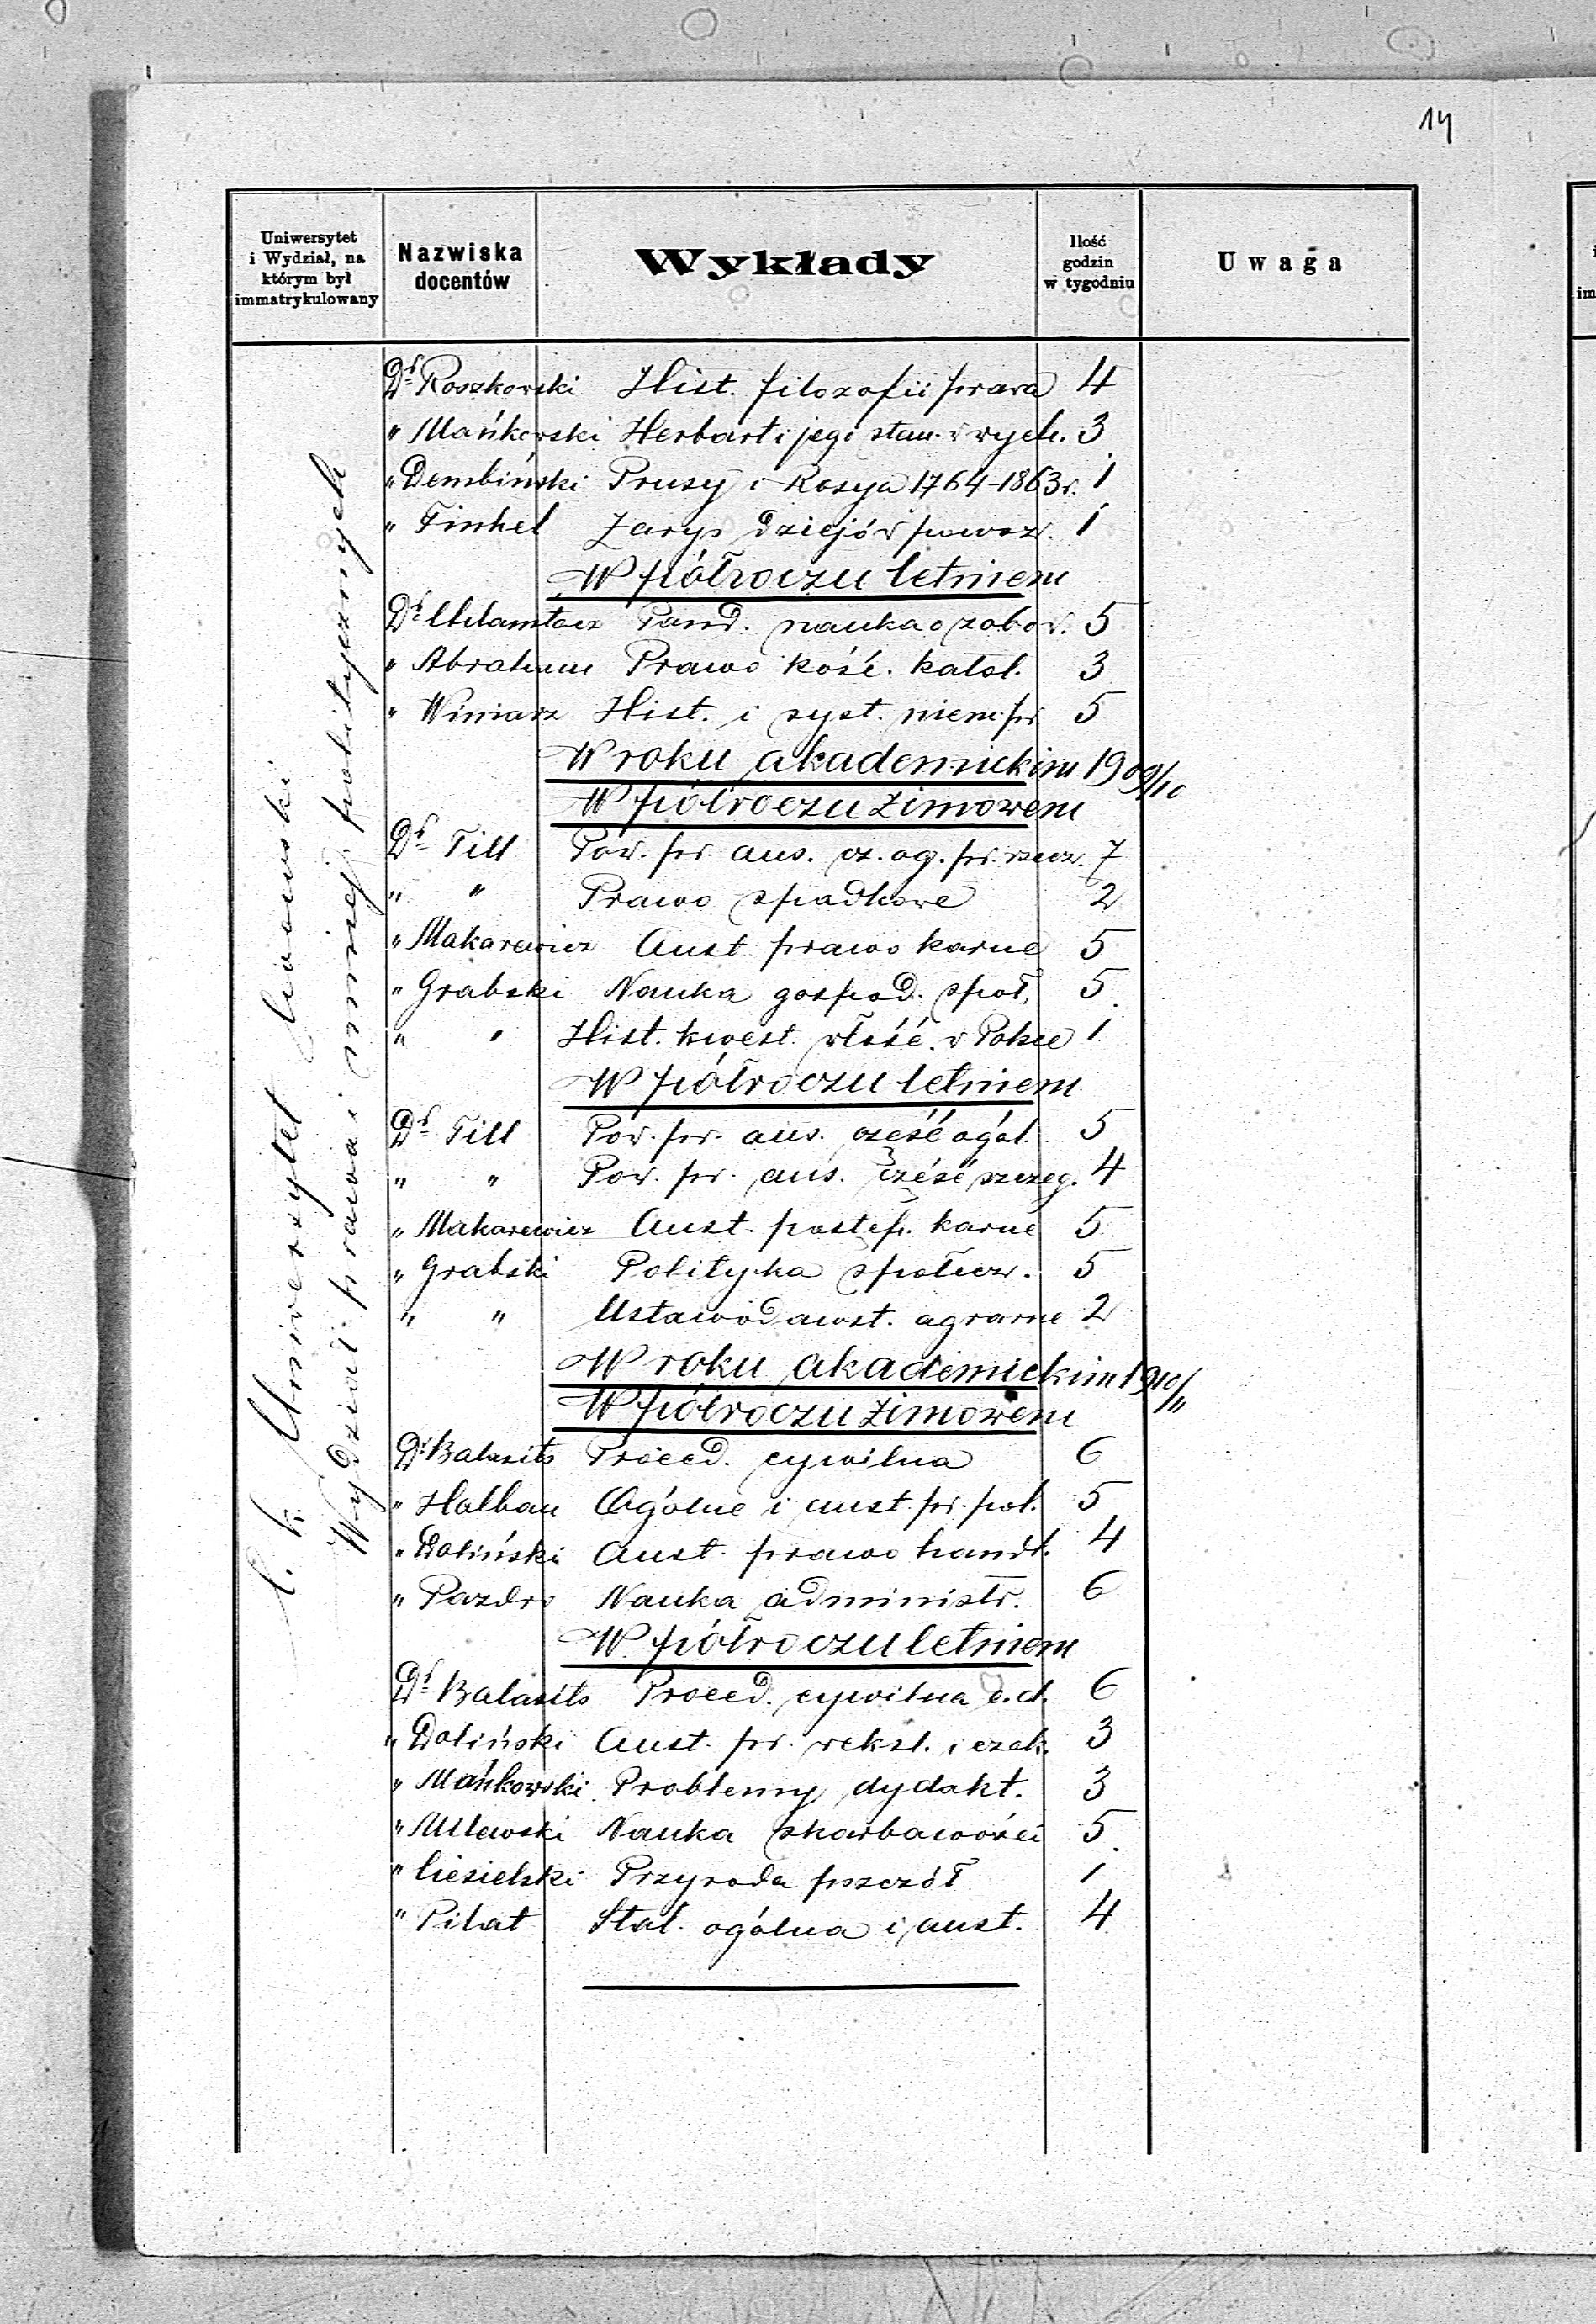 14
Uniwersytet i Wydział, na którym był immatrykulowany
Nazwiska docentów
Wykłady
Ilość godzin w tygodniu
Uwaga
C. k. Uniwersytet lwowski
Wydział prawa i umiej. politycznych
Dr Roszkowski Hist. filozofii prawa 4
" Mańkowski Herbart i jego stan. w wych. 3
" Dembiński Prusy i Rosya 1764-1863 r. 1
" Finkel Zarys dziejów powsz. 1
W półroczu letniem
Dr Chlamtacz Pand. nauka o zobow. 5
" Abraham Prawo kość. katol. 3
" Winiarz Hist. i syst. niem. pr 5
W roku akademickim 1909/10
W półroczu zimowem
Dr Till Pow. pr. aus. cz. og. pr. rzecz. 7
" " Prawo spadkowe 2
" Makarewicz Aust prawo karne 5
" Grabski Nauka gospod. społ. 5
" " Hist. kwest. włość. w Polsce 1
W półroczu letniem
Dr Till Pow. pr. aus. cześć ogól. 5
" " Pow. pr. aus. cześć szczeg. 4
" Makarewicz Aust. postęp. karne 5
" Grabski Polityka społecz. 5
" " Ustawodawst. agrarne 2
W roku akademickim 1910/11
W półroczu zimowem
Dr Balasits Proced. cywilna 6
" Halban Ogólne i aust. pr. pol. 5
" Doliński Aust. prawo handl. 4
" Pazdro Nauka administr. 6
W półroczu letniem
Dr Balasits Proced. cywilna c.d. 6
" Doliński Aust. pr. weksl. i czek. 3
" Mańkowski Problemy dydakt. 3
" Milewski Nauka skarbowości 5
" Ciesielski Przyroda pszczół 1
" Pilat Stat. ogólna i aust. 4